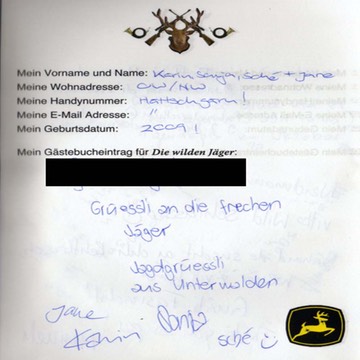 Mein Vorname und Name: Karin Sonja, Sché + Jane
Meine Wohnadresse: OW/NW
Meine Handynummer: Hättsch gärn!
Meine E-Mail Adresse: "
Mein Geburtsdatum: 2009!
Mein Gästebucheintrag für Die wilden Jäger:
Grüessli an die frechen
Jäger
Jagdgrüessli
aus Unterwalden
Jane
Karin Sonja sché